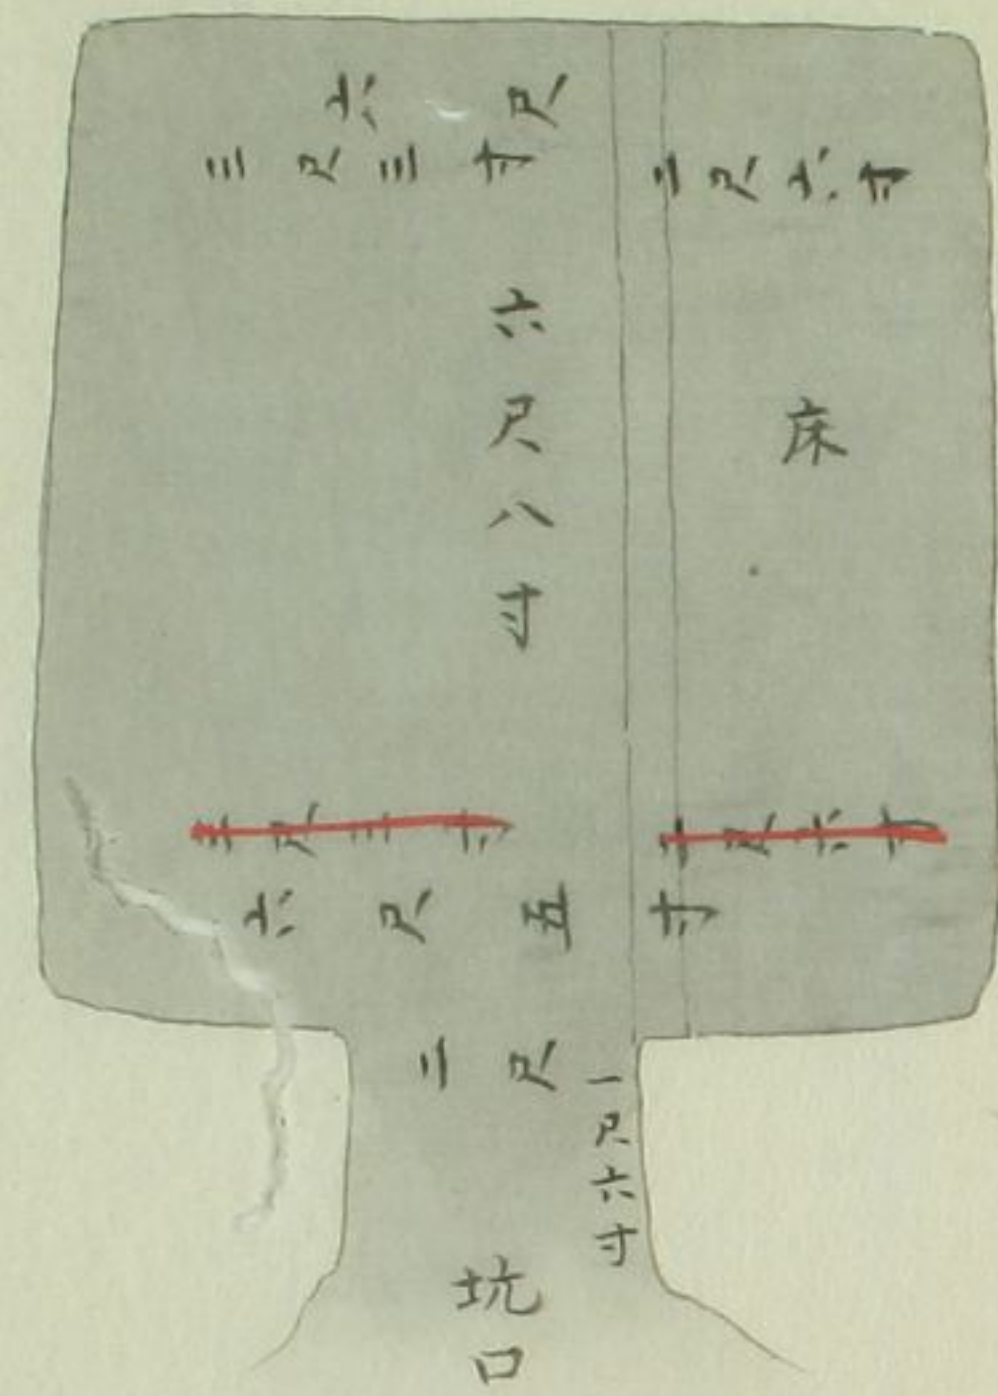 六尺
三尺三寸
二尺六寸
床
六尺八寸
三尺三寸
二尺六寸
六尺五寸
二尺
一尺六寸
坑口